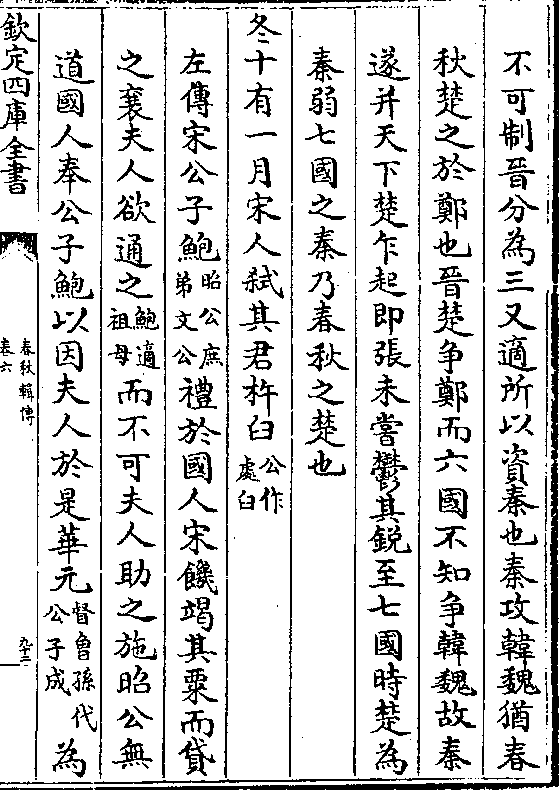 不可制晉分為三又適所以資秦也秦攻韓魏猶春
秋楚之於鄭也晉楚争鄭而六國不知争韓魏故秦
遂并天下楚乍起即張未嘗鬱其鋭至七國時楚為
秦弱七國之秦乃春秋之楚也
冬十有一月宋人弑其君杵臼公作處臼
左傳宋公子鮑昭公庶弟文公禮於國人宋饑竭其粟而貸
之襄夫人欲通之鮑適祖母而不可夫人助之施昭公無
道國人奉公子鮑以因夫人於是華元督曽孫代公子成為
欽定四庫全書
春秋輯傳
卷六
九十二